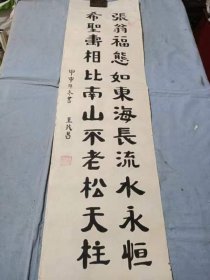 張翁福態如東海長流水永恒
希聖壽相比南山不老松天柱
甲申